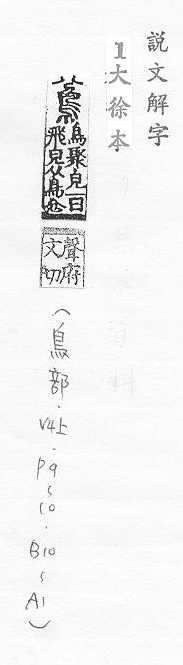 說文解字
1大徐本
鳻
鳥聚皃一曰
飛皃从鳥分
聲府
文切
(鳥部.V4上.P9~10.B10~A1)